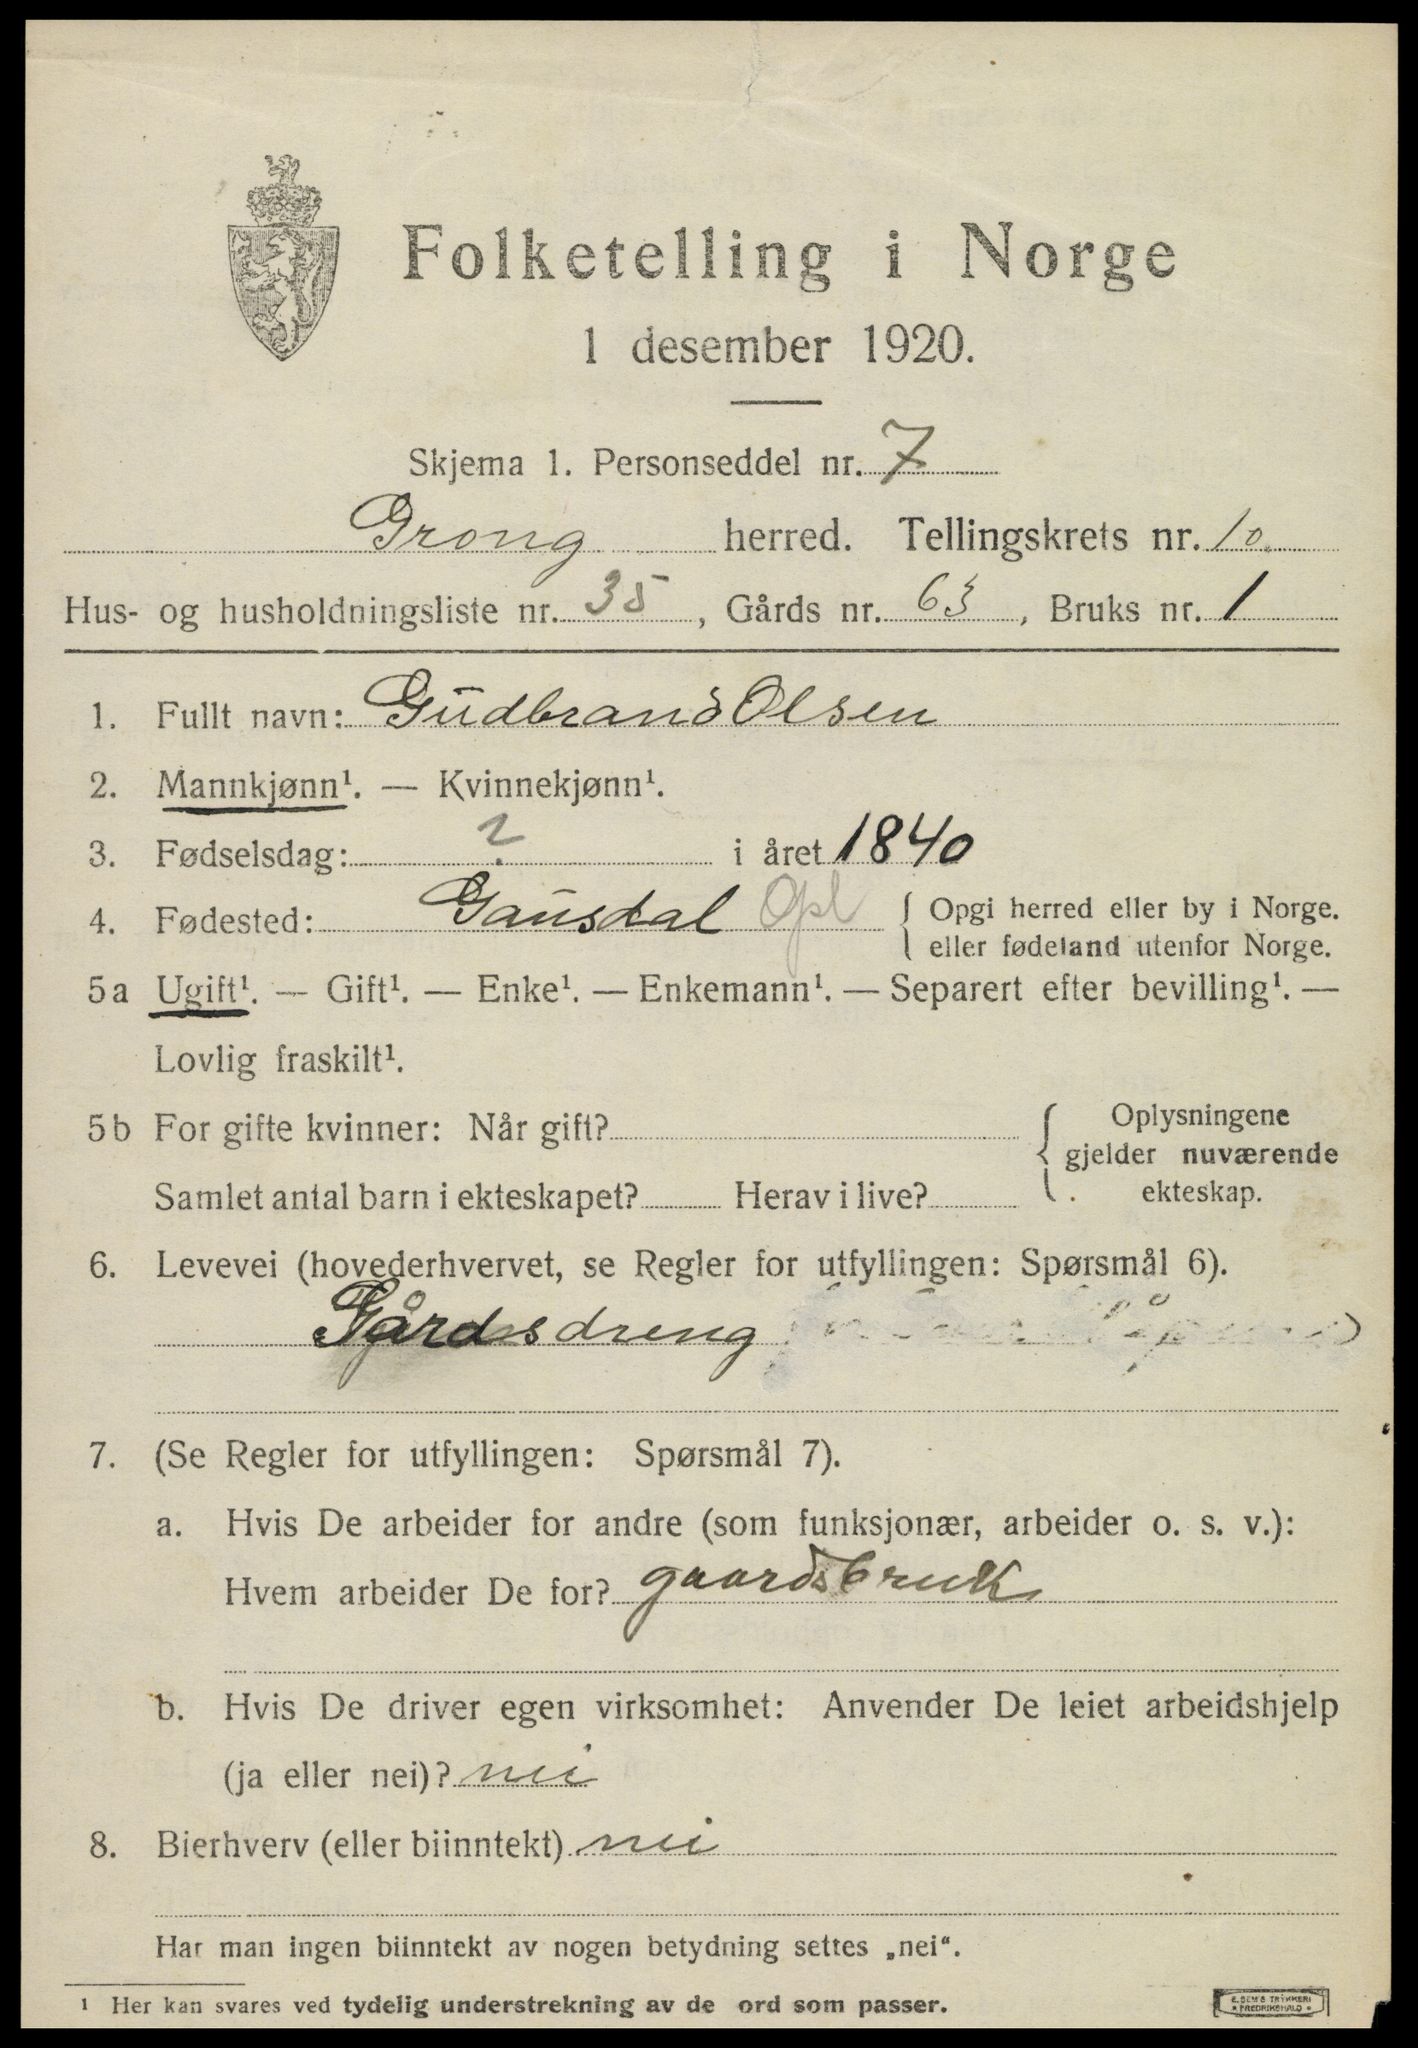 Folketelling i Norge
1 desember 1920.
Skjema 1. Personseddel nr. 7
Grong herred. Tellingskrets nr. 10.
Hus- og husholdningsliste nr. 35, Gårds nr. 63, Bruks nr. 1
1. Fullt navn: Gudbrand Olsen
2. Mannkjønn¹. — Kvinnekjønn¹.
3. Fødselsdag: ? i året 1840
4. Fødested: Gausdal Opl { Opgi herred eller by i Norge.
eller fødeland utenfor Norge.
5a Ugift¹. — Gift¹. — Enke¹. — Enkemann¹. — Separert efter bevilling¹. —
Lovlig fraskilt¹.
5b For gifte kvinner: Når gift? { Oplysningene
gjelder nuværende
Samlet antal barn i ekteskapet? Herav i live? ekteskap.
6. Levevei (hovederhvervet, se Regler for utfyllingen: Spørsmål 6).
Gårdsdreng
7. (Se Regler for utfyllingen: Spørsmål 7).
a. Hvis De arbeider for andre (som funksjonær, arbeider o. s. v.):
Hvem arbeider De for? gaardsbruk
b. Hvis De driver egen virksomhet: Anvender De leiet arbeidshjelp
(ja eller nei)? nei
8. Bierhverv (eller biinntekt) nei
Har man ingen biinntekt av nogen betydning settes „nei“.
¹ Her kan svares ved tydelig understrekning av de ord som passer.
E. SEM'S TRYKKERI
FREDRIKSHALD